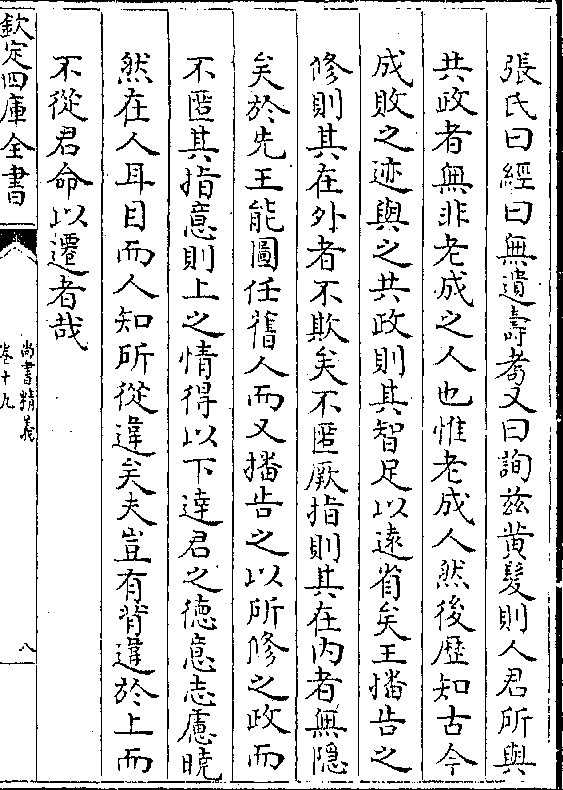 張氏曰經曰無遺壽耉又曰詢茲黃髮則人君所與
共政者無非老成之人也惟老成人然後歷知古今
成敗之迹與之共政則其智足以遠省矣王播告之
修則其在外者不欺矣不匿厥指則其在内者無隱
矣於先王能圖任舊人而又播告之以所修之政而
不匿其指意則上之情得以下達君之徳意志慮曉
然在人耳目而人知所從違矣夫豈有背違於上而
不從君命以遷者哉
欽定四庫全書
尚書精義
卷十九
八